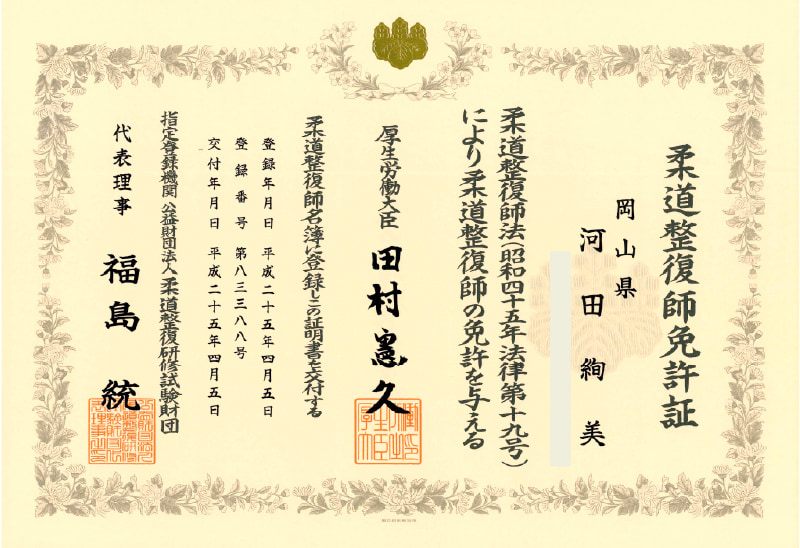 柔道整復師免許証
岡山県
河田絢美
柔道整復師法(昭和四十五年法律第十九号)
により柔道整復師の免許を与える
厚生労働大臣 田村憲久
柔道整復師名簿に登録しこの証明書を交付する
登録年月日 平成二十五年四月五日
登録番号 第八三三八八号
交付年月日 平成二十五年四月五日
指定登録機関 公益財団法人柔道整復研修試験財団
代表理事 福島統